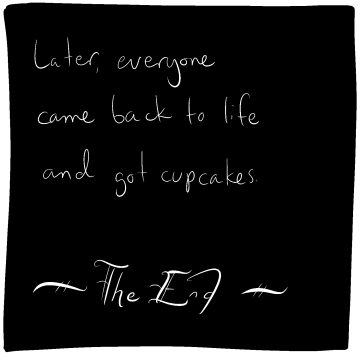 Later, everyone
came back to life
and got cupcakes.
~ The End ~